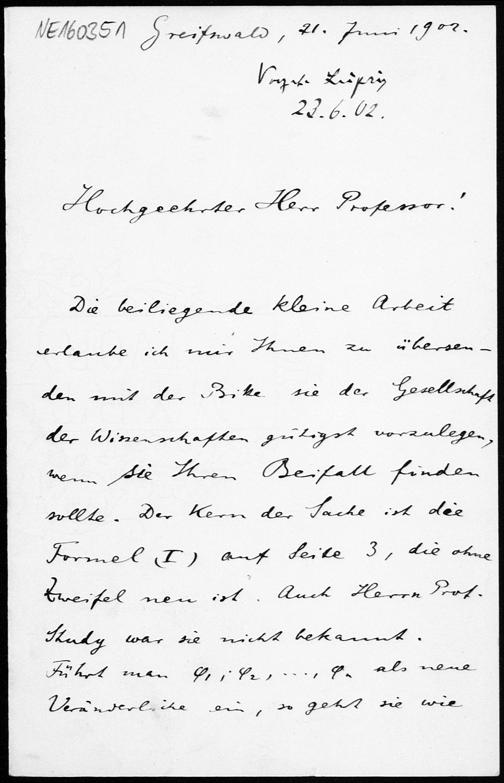 NE160351 Greifswald, 21. Juni 1902.
23.6.02.
Hochgeehrter Herr Professor!
Die beiliegende kleine Arbeit
erlaube ich mir Ihnen zu übersen-
den mit der Bitte sie der Gesellschaft
der Wissenschaften gütigst vorzulegen,
wenn sie Ihren Beifall finden
sollte. Der Kern der Sache ist die
Formel (I) auf Seite 3, die ohne
Zweifel neu ist. Auch Herrn Prof.
Study war sie nicht bekannt.
Führt man φ₁, φ₂, ..., φₙ als neue
Veränderliche ein, so geht sie wie